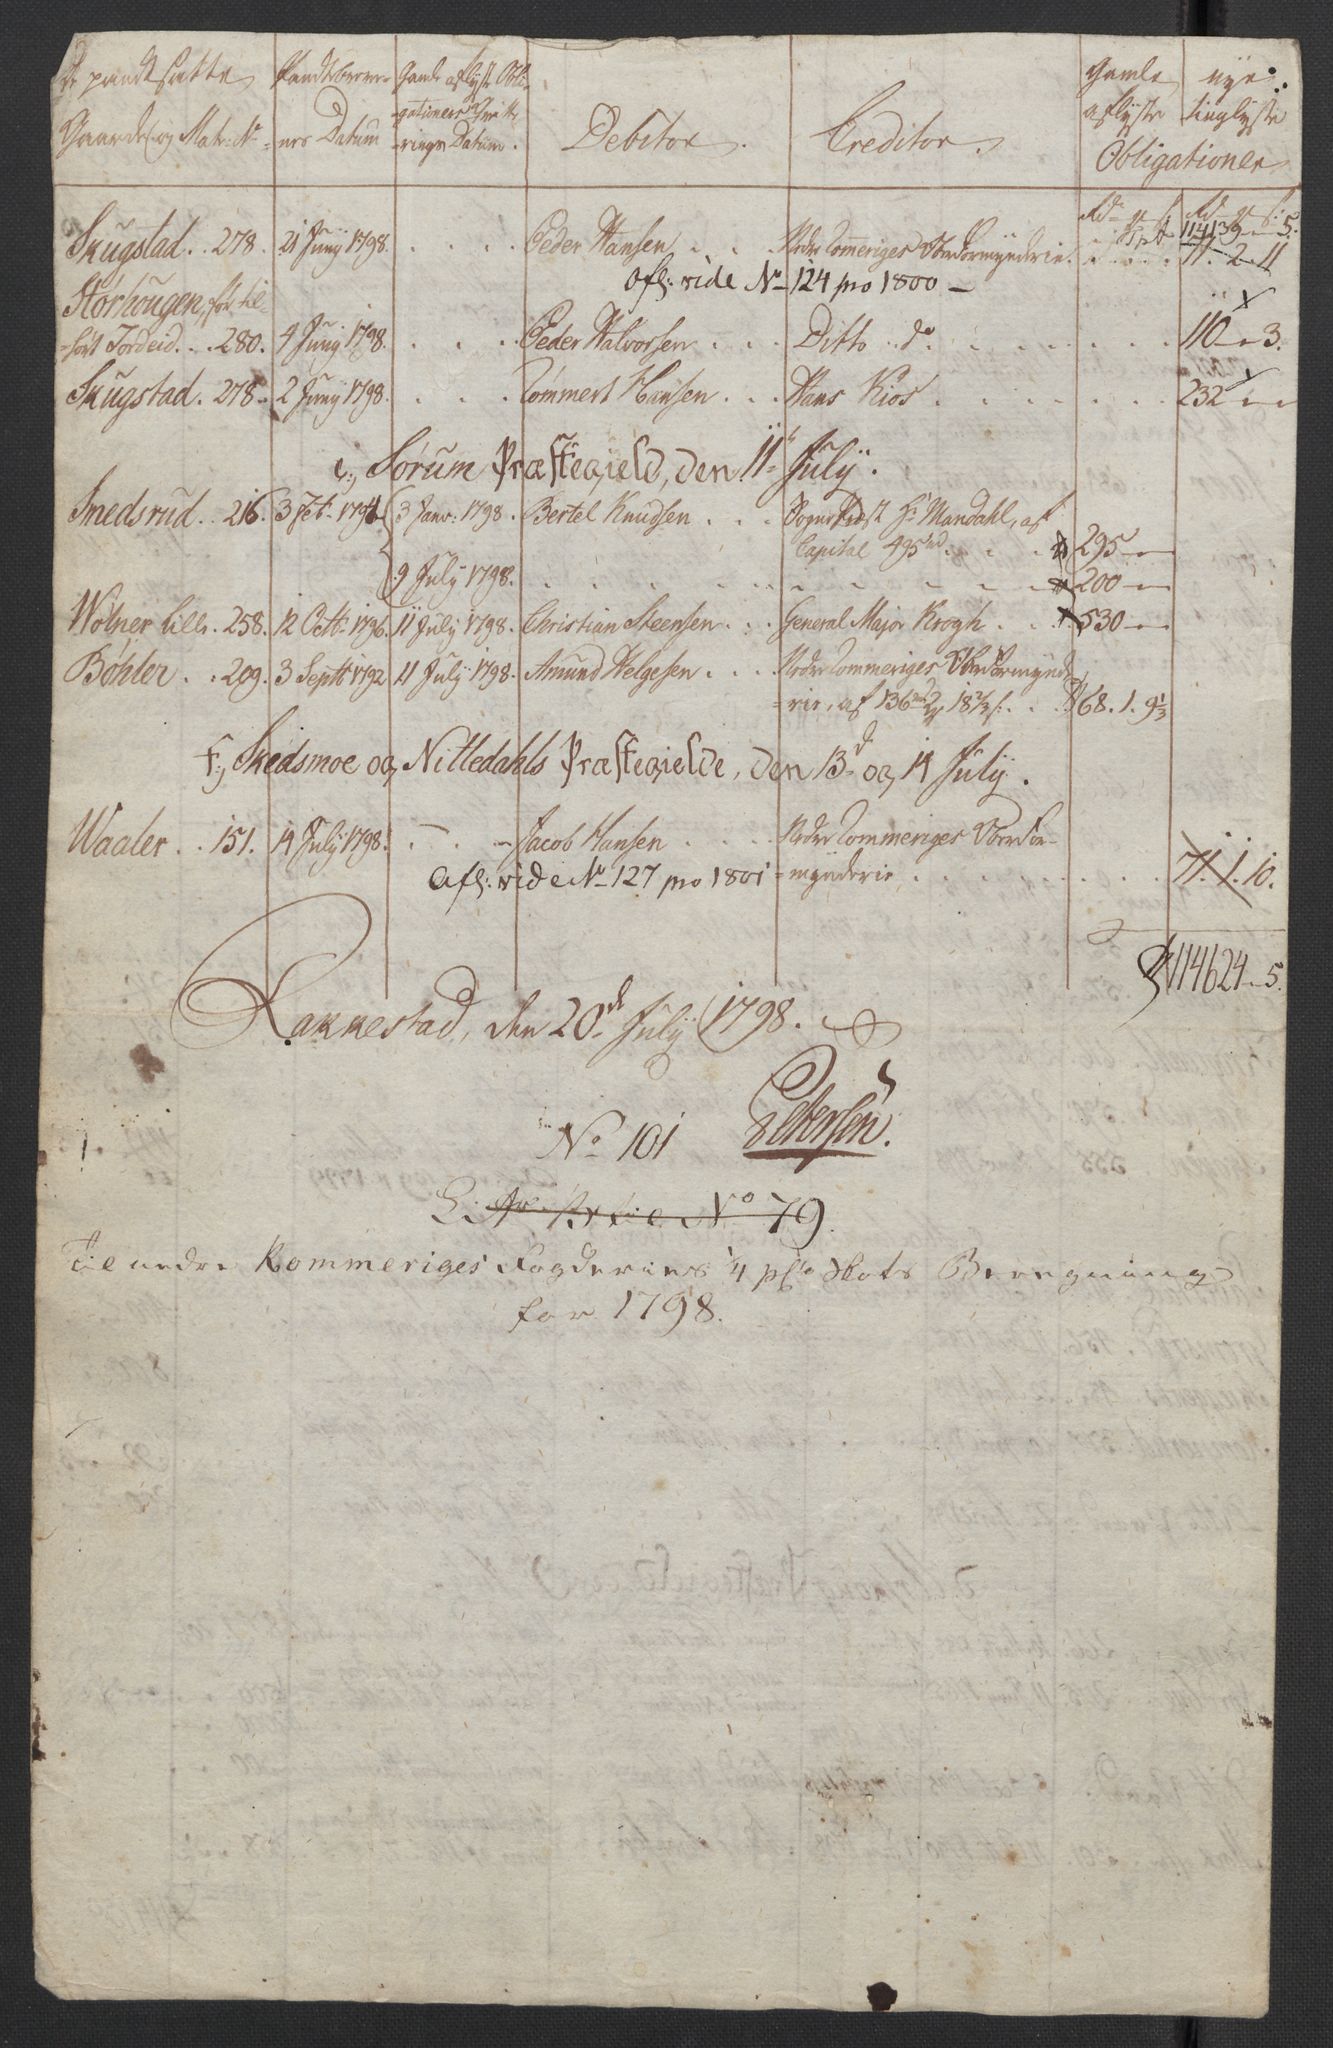 De pandtsatte Gaarde og Matr: No
Pandtbrevenes Datum
Gamle aflyste Obligationers Qvitterings Datum.
Debitor.
Creditor.
Gamle aflyste
nye tinglyste
Obligationer
Rd. q s. Rd. q s.
Transp. 114139 " 5.
Skugstad . . 278. 21 Junij 1798. . . . . Peder Hansen . . Nedre Rommeriges Overformynderie. . . . . 11. 2. 11
Afl: vide No 124 pro 1800
Størhougen, for til-
hørt Jordeid. . . 280. 4 Junij 1798. . . . . Peder Halvorsen . . . Ditto do . . . . . . . 110 " 3.
Skugstad. 278. 2 Junij 1798. . . . . Tommert Hansen . . Hans Kios . . . . . . . 232 " "
e., Sørum Præstegield, den 11te Julij.
Smedsrud. . 216. 3 Feb: 1794 3 Janv: 1798. Bertel Knudsen . . . SognePræst Hr Mandahl, af
Capital 495 rd . . . . 295 " "
9 Julij 1798. . . . . . . . . 200 " "
Wølner lille. 258. 12 Octbr 1796. 11 Julij 1798. Christian Steensen . . General Major Krogh . . . 530 " "
Bøhler . . 209. 3 Septbr 1792 11 Julij 1798. Amund Helgesen . . . Nedre Rommeriges Overformynde-
rie, af 136 rd 2 q 18 2/3 s. . . 68. 1. 9 1/3
f., Skedsmoe og Nittedahls Præstegielde, den 13de og 14 Julij.
Waaler . . 151. 14 Julij 1798. . . . Jacob Hansen . . . . Nedre Rommeriges Overfor-
Afl: vide No 127 pro 1801 mynderie . . . . . . . . . 71. 1. 10.
114624 " 5.
Rakkestad, den 20de Julij 1798.
Pedersen.
No 101
No 79
Til nedre Rommeriges Fogderies 1/4 pCto Skats Beregning
for 1798.